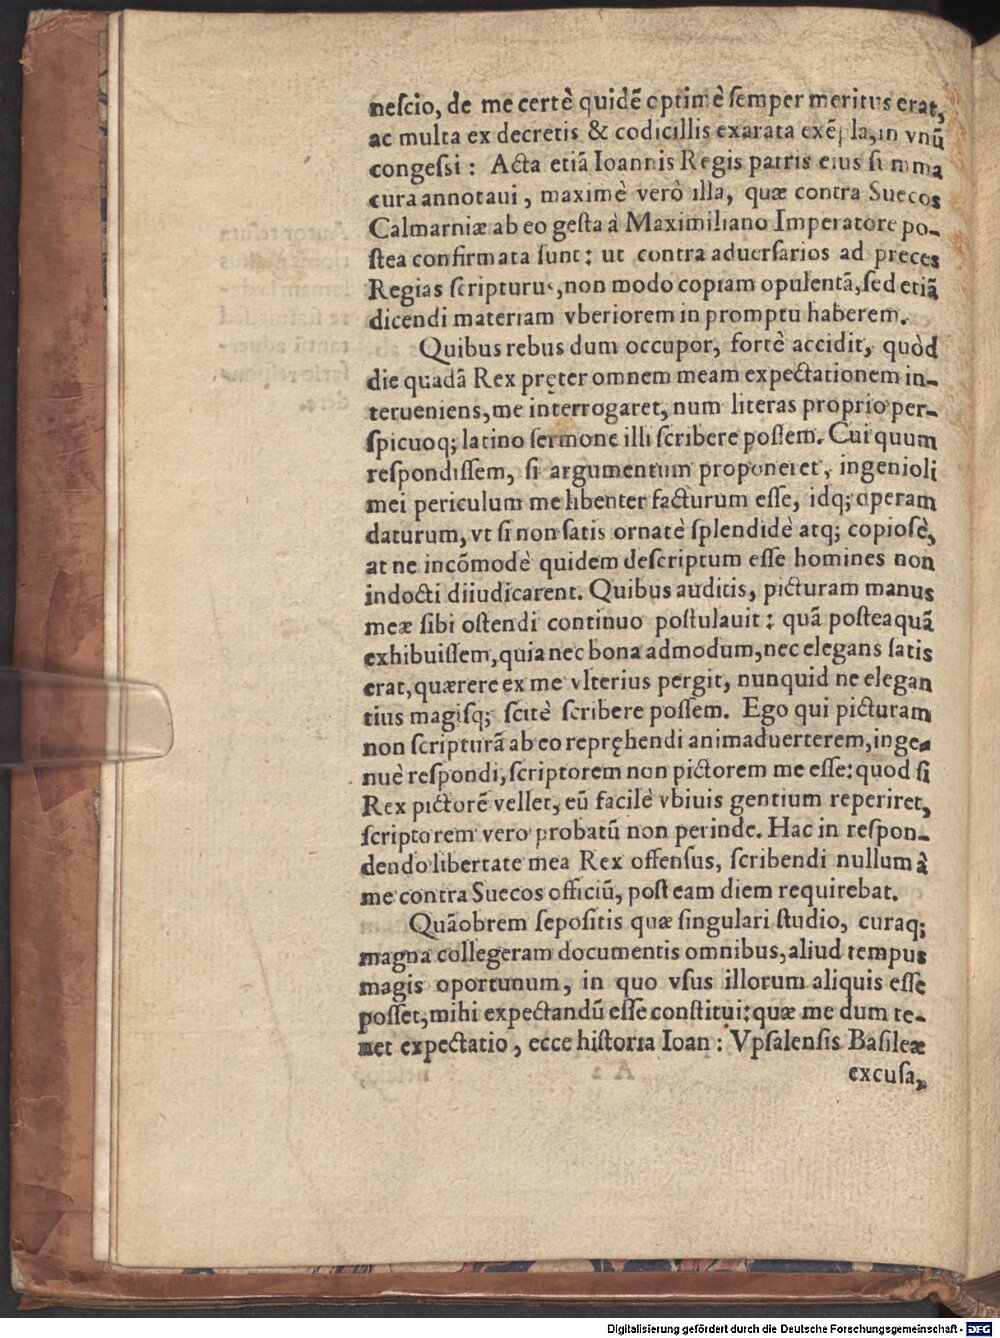 neſcio, de me certè quidẽ optimè ſemper meritus erat,
ac multa ex decretis & codicillis exarata exẽpla, in vnũ
congeſsi : Acta etiã Ioannis Regis patris eius ſumma
cura annotaui, maximè verò illa, quæ contra Suecos
Calmarniæ ab eo geſta à Maximiliano Imperatore po-
ſtea confirmata ſunt : ut contra aduerſarios ad preces
Regias ſcripturus, non modo copiam opulentã, ſed etiã
dicendi materiam vberiorem in promptu haberem.
Quibus rebus dum occupor, fortè accidit, quòd
die quadã Rex pręter omnem meam expectationem in-
terueniens, me interrogaret, num literas proprio per-
ſpicuoq; latino ſermone illi ſcribere poſſem. Cui quum
reſpondiſſem, ſi argumentum proponeret, ingenioli
mei periculum me libenter facturum eſſe, idq; operam
daturum, vt ſi non ſatis ornatè ſplendidè atq; copioſè,
at ne incõmodè quidem deſcriptum eſſe homines non
indocti diiudicarent. Quibus auditis, picturam manus
meæ ſibi oſtendi continuo poſtulauit : quã poſteaquã
exhibuiſſem, quia nec bona admodum, nec elegans ſatis
erat, quærere ex me vlterius pergit, nunquid ne elegan
tius magiſq; ſcitè ſcribere poſſem. Ego qui picturam
non ſcripturã ab eo repręhendi animaduerterem, inge-
nuè reſpondi, ſcriptorem non pictorem me eſſe : quod ſi
Rex pictorẽ vellet, eũ facilè vbiuis gentium reperiret,
ſcriptorem vero probatũ non perinde. Hac in reſpon-
dendo libertate mea Rex offenſus, ſcribendi nullum à
me contra Suecos officiũ, poſt eam diem requirebat.
Quãobrem ſepoſitis quæ ſingulari ſtudio, curaq;
magna collegeram documentis omnibus, aliud tempus
magis oportunum, in quo vſus illorum aliquis eſſe
poſſet, mihi expectandũ eſſe conſtitui : quæ me dum te-
net expectatio, ecce hiſtoria Ioan : Vpſalenſis Baſileæ
excuſa,
Digitalisierung gefördert durch die Deutsche Forschungsgemeinschaft - DFG